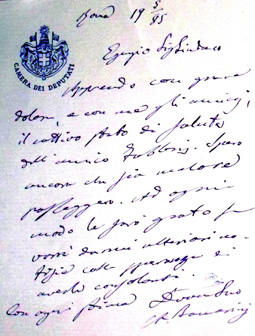 Roma 19 5/95
CAMERA DEI DEPUTATI
Egregio Sig Sindaco
Apprendo con grave
dolore, e con me gli amici,
il cattivo stato di salute
dell'amico Spero
ancora che sia malore
passeggero. Ad ogni
modo le sarò grato se
vorrà darmi ulteriori no-
tizie colla speranza di
averle consolanti.
Con ogni stima Devm Suo